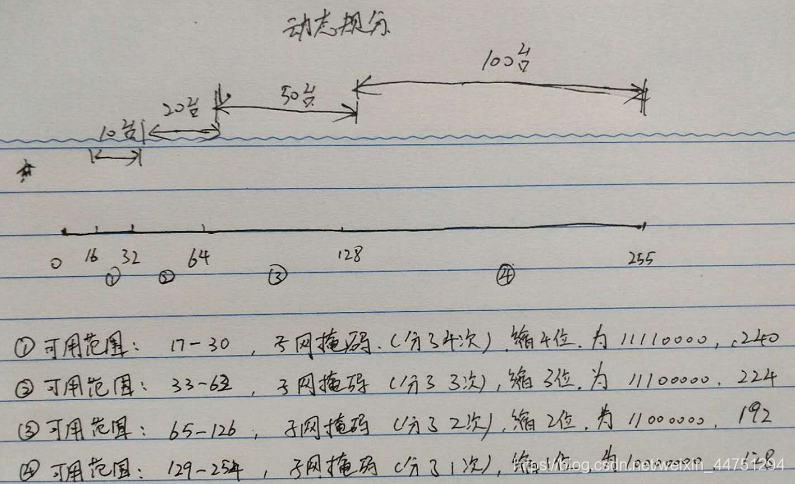 动态划分
100台
50台
20台
10台
0 16 32 64 128 255
① ② ③ ④
①可用范围: 17-30, 子网掩码.(分了4次),缩4位.为11110000, .240
②可用范围: 33-62, 子网掩码(分了3次),缩3位.为11100000. 224
③可用范围: 65-126, 子网掩码(分了2次),缩2位.为11000000. 192
④可用范围: 129-254, 子网掩码(分了1次),缩1位.为10000000. 128
https://blog.csdn.net/weixin_44751294